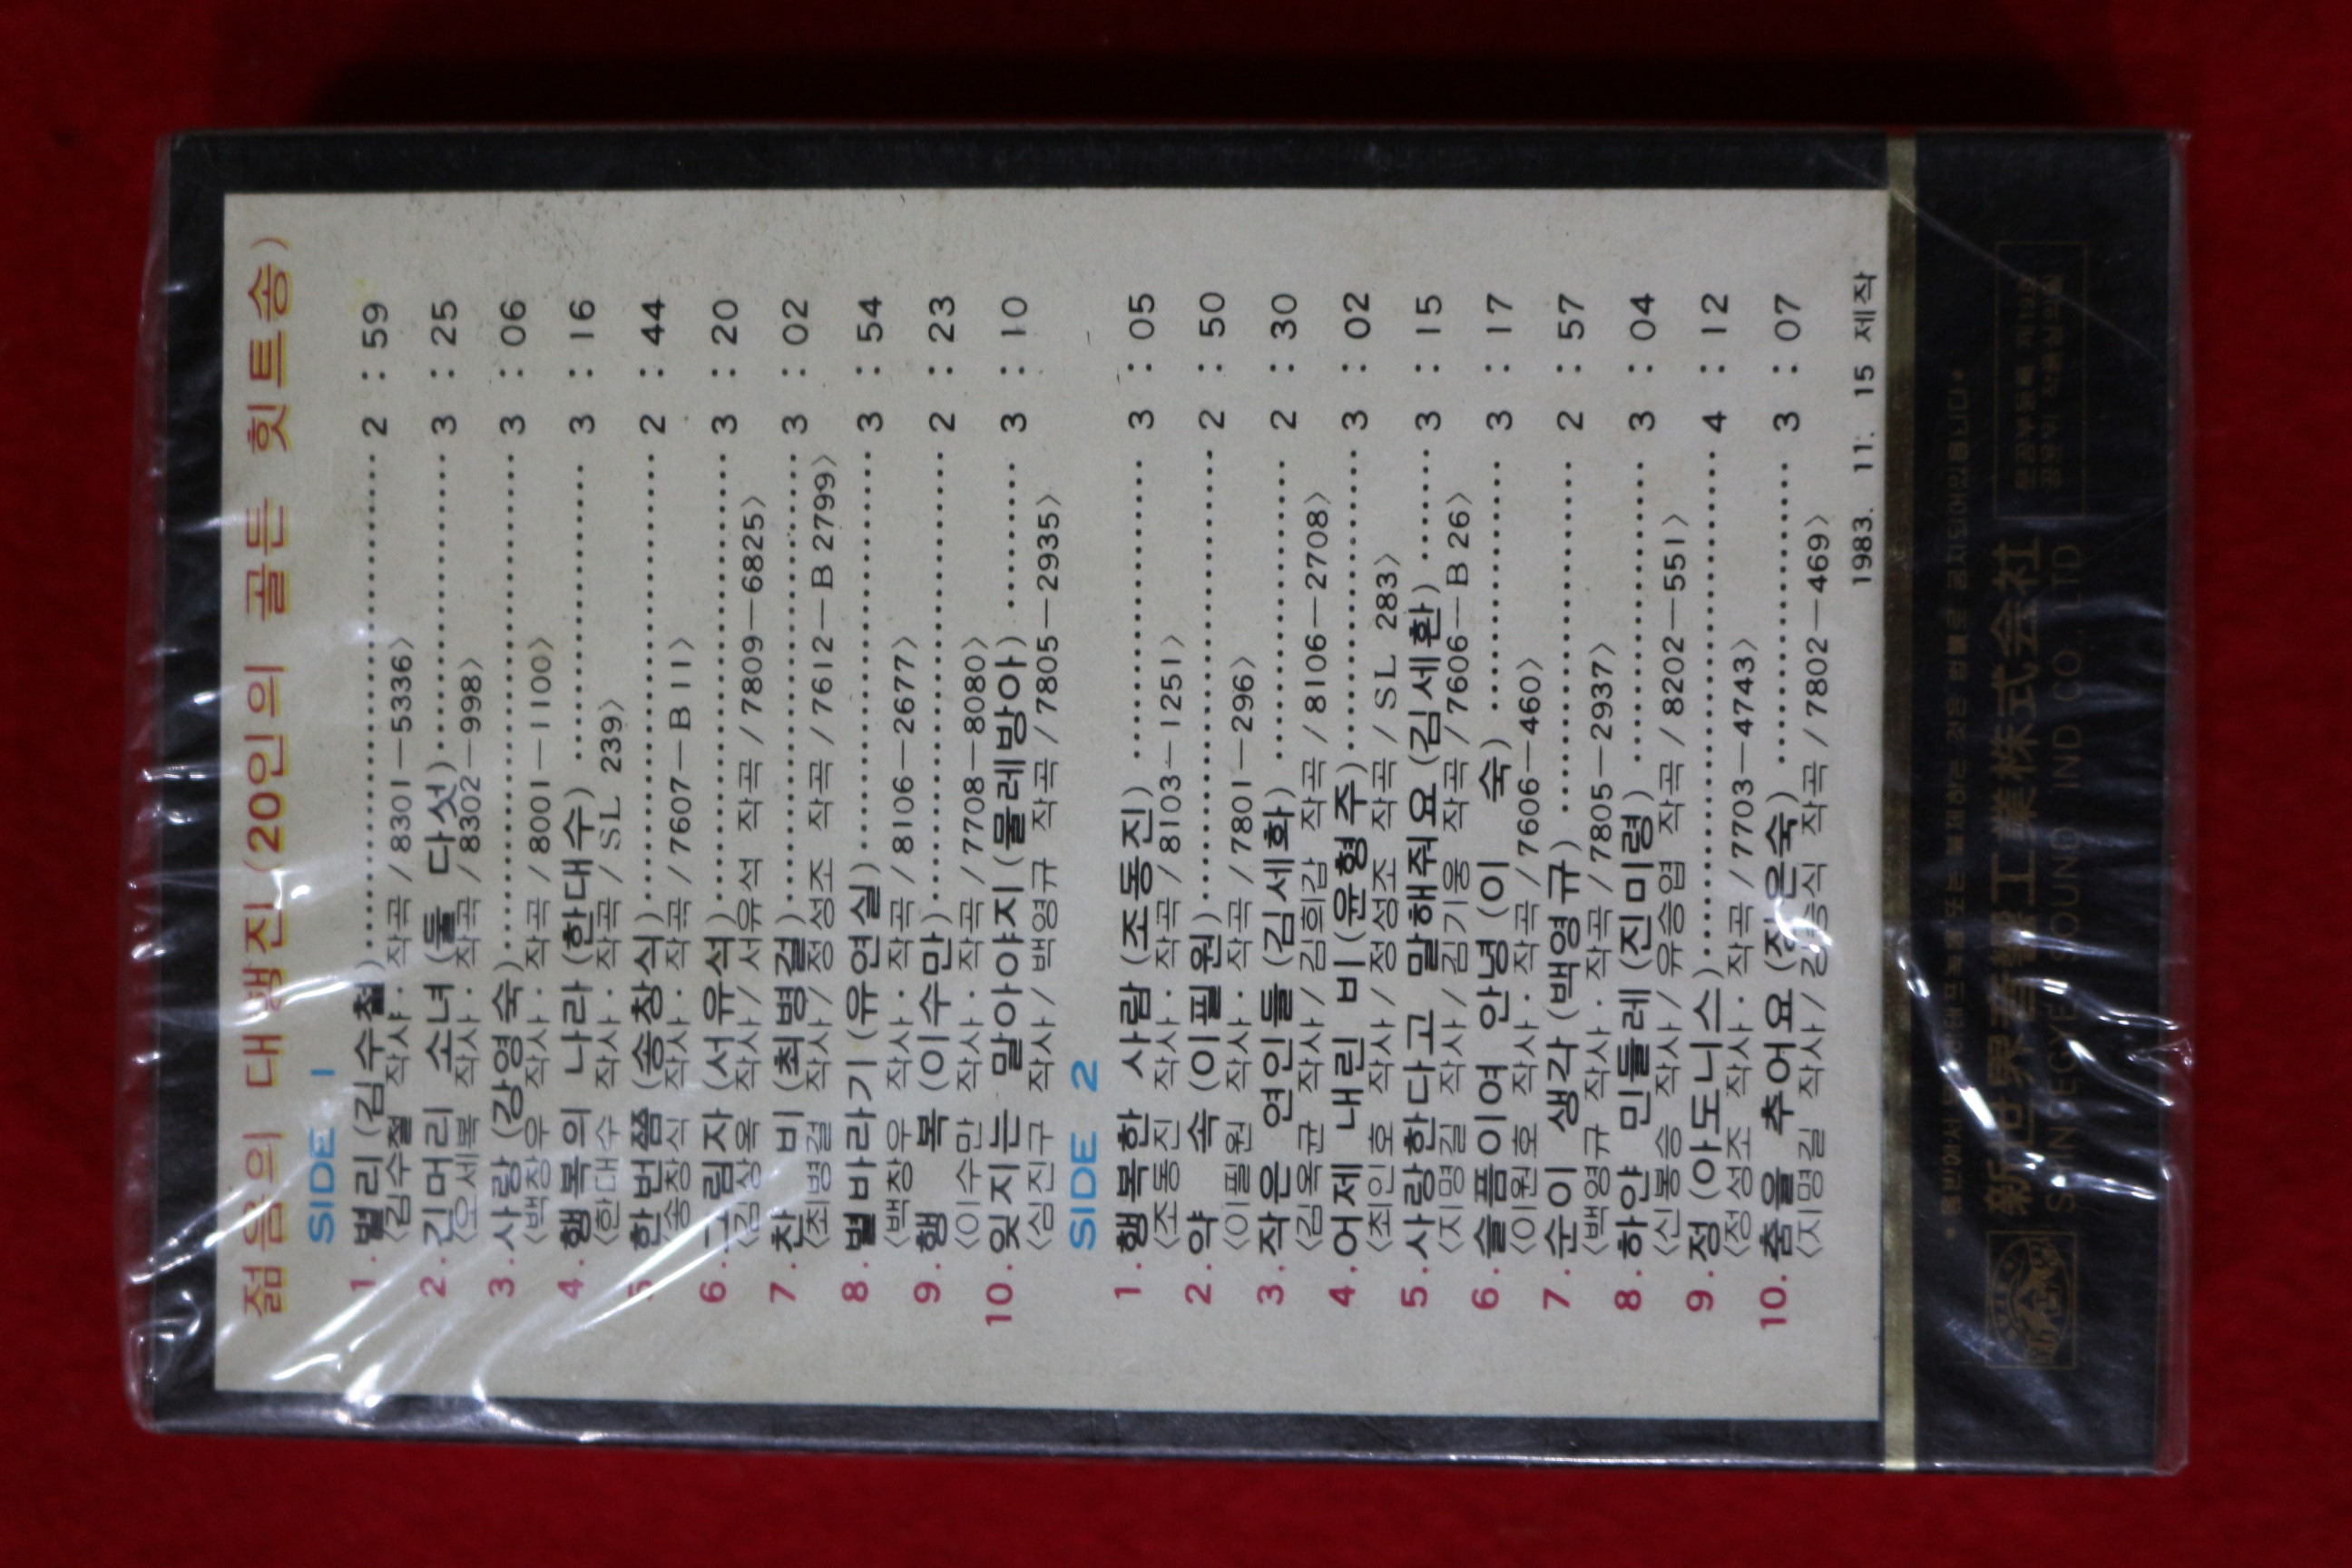 젊음의 대행진 (20인의 골든 힛트송)
SIDE 1
1. 별리 (김수철) 2 : 59
〈김수철 작사 · 작곡 / 8301—5336〉
2. 긴머리 소녀 (둘 다섯) 3 : 25
〈오세복 작사 · 작곡 / 8302—998〉
3. 사랑 (강영숙) 3 : 06
〈백창우 작사 · 작곡 / 8001—1100〉
4. 행복의 나라 (한대수) 3 : 16
〈한대수 작사 · 작곡 / SL 239〉
5. 한번쯤 (송창식) 2 : 44
〈송창식 작사 · 작곡 / 7607—B 11〉
6. 그림자 (서유석) 3 : 20
〈김상옥 작사 / 서유석 작곡 / 7809—6825〉
7. 찬 비 (최병걸) 3 : 02
〈최병걸 작사 / 정성조 작곡 / 7612—B 2799〉
8. 별바라기 (유연실) 3 : 54
〈백창우 작사 · 작곡 / 8106—2677〉
9. 행 복 (이수만) 2 : 23
〈이수만 작사 · 작곡 / 7708—8080〉
10. 잊지는 말아야지 (물레방아) 3 : 10
〈심진구 작사 / 백영규 작곡 / 7805—2935〉
SIDE 2
1. 행복한 사람 (조동진) 3 : 05
〈조동진 작사 · 작곡 / 8103—1251〉
2. 약 속 (이필원) 2 : 50
〈이필원 작사 · 작곡 / 7801—296〉
3. 작은 연인들 (김세화) 2 : 30
〈김욱균 작사 / 김희갑 작곡 / 8106—2708〉
4. 어제 내린 비 (윤형주) 3 : 02
〈최인호 작사 / 정성조 작곡 / SL 283〉
5. 사랑한다고 말해줘요 (김세환) 3 : 15
〈지명길 작사 / 김기웅 작곡 / 7606—B 26〉
6. 슬픔이여 안녕 (이 숙) 3 : 17
〈이원호 작사 · 작곡 / 7606—460〉
7. 순이 생각 (백영규) 2 : 57
〈백영규 작사 · 작곡 / 7805—2937〉
8. 하얀 민들레 (진미령) 3 : 04
〈신봉승 작사 / 유승엽 작곡 / 8202—551〉
9. 정 (아도니스) 4 : 12
〈정성조 작사 · 작곡 / 7703—4743〉
10. 춤을 추어요 (장은숙) 3 : 07
〈지명길 작사 / 작곡 / 7802—469〉
1983. 11. 15 제작
新世界音響工業株式会社
SHINSEGYE SOUND IND CO. LTD